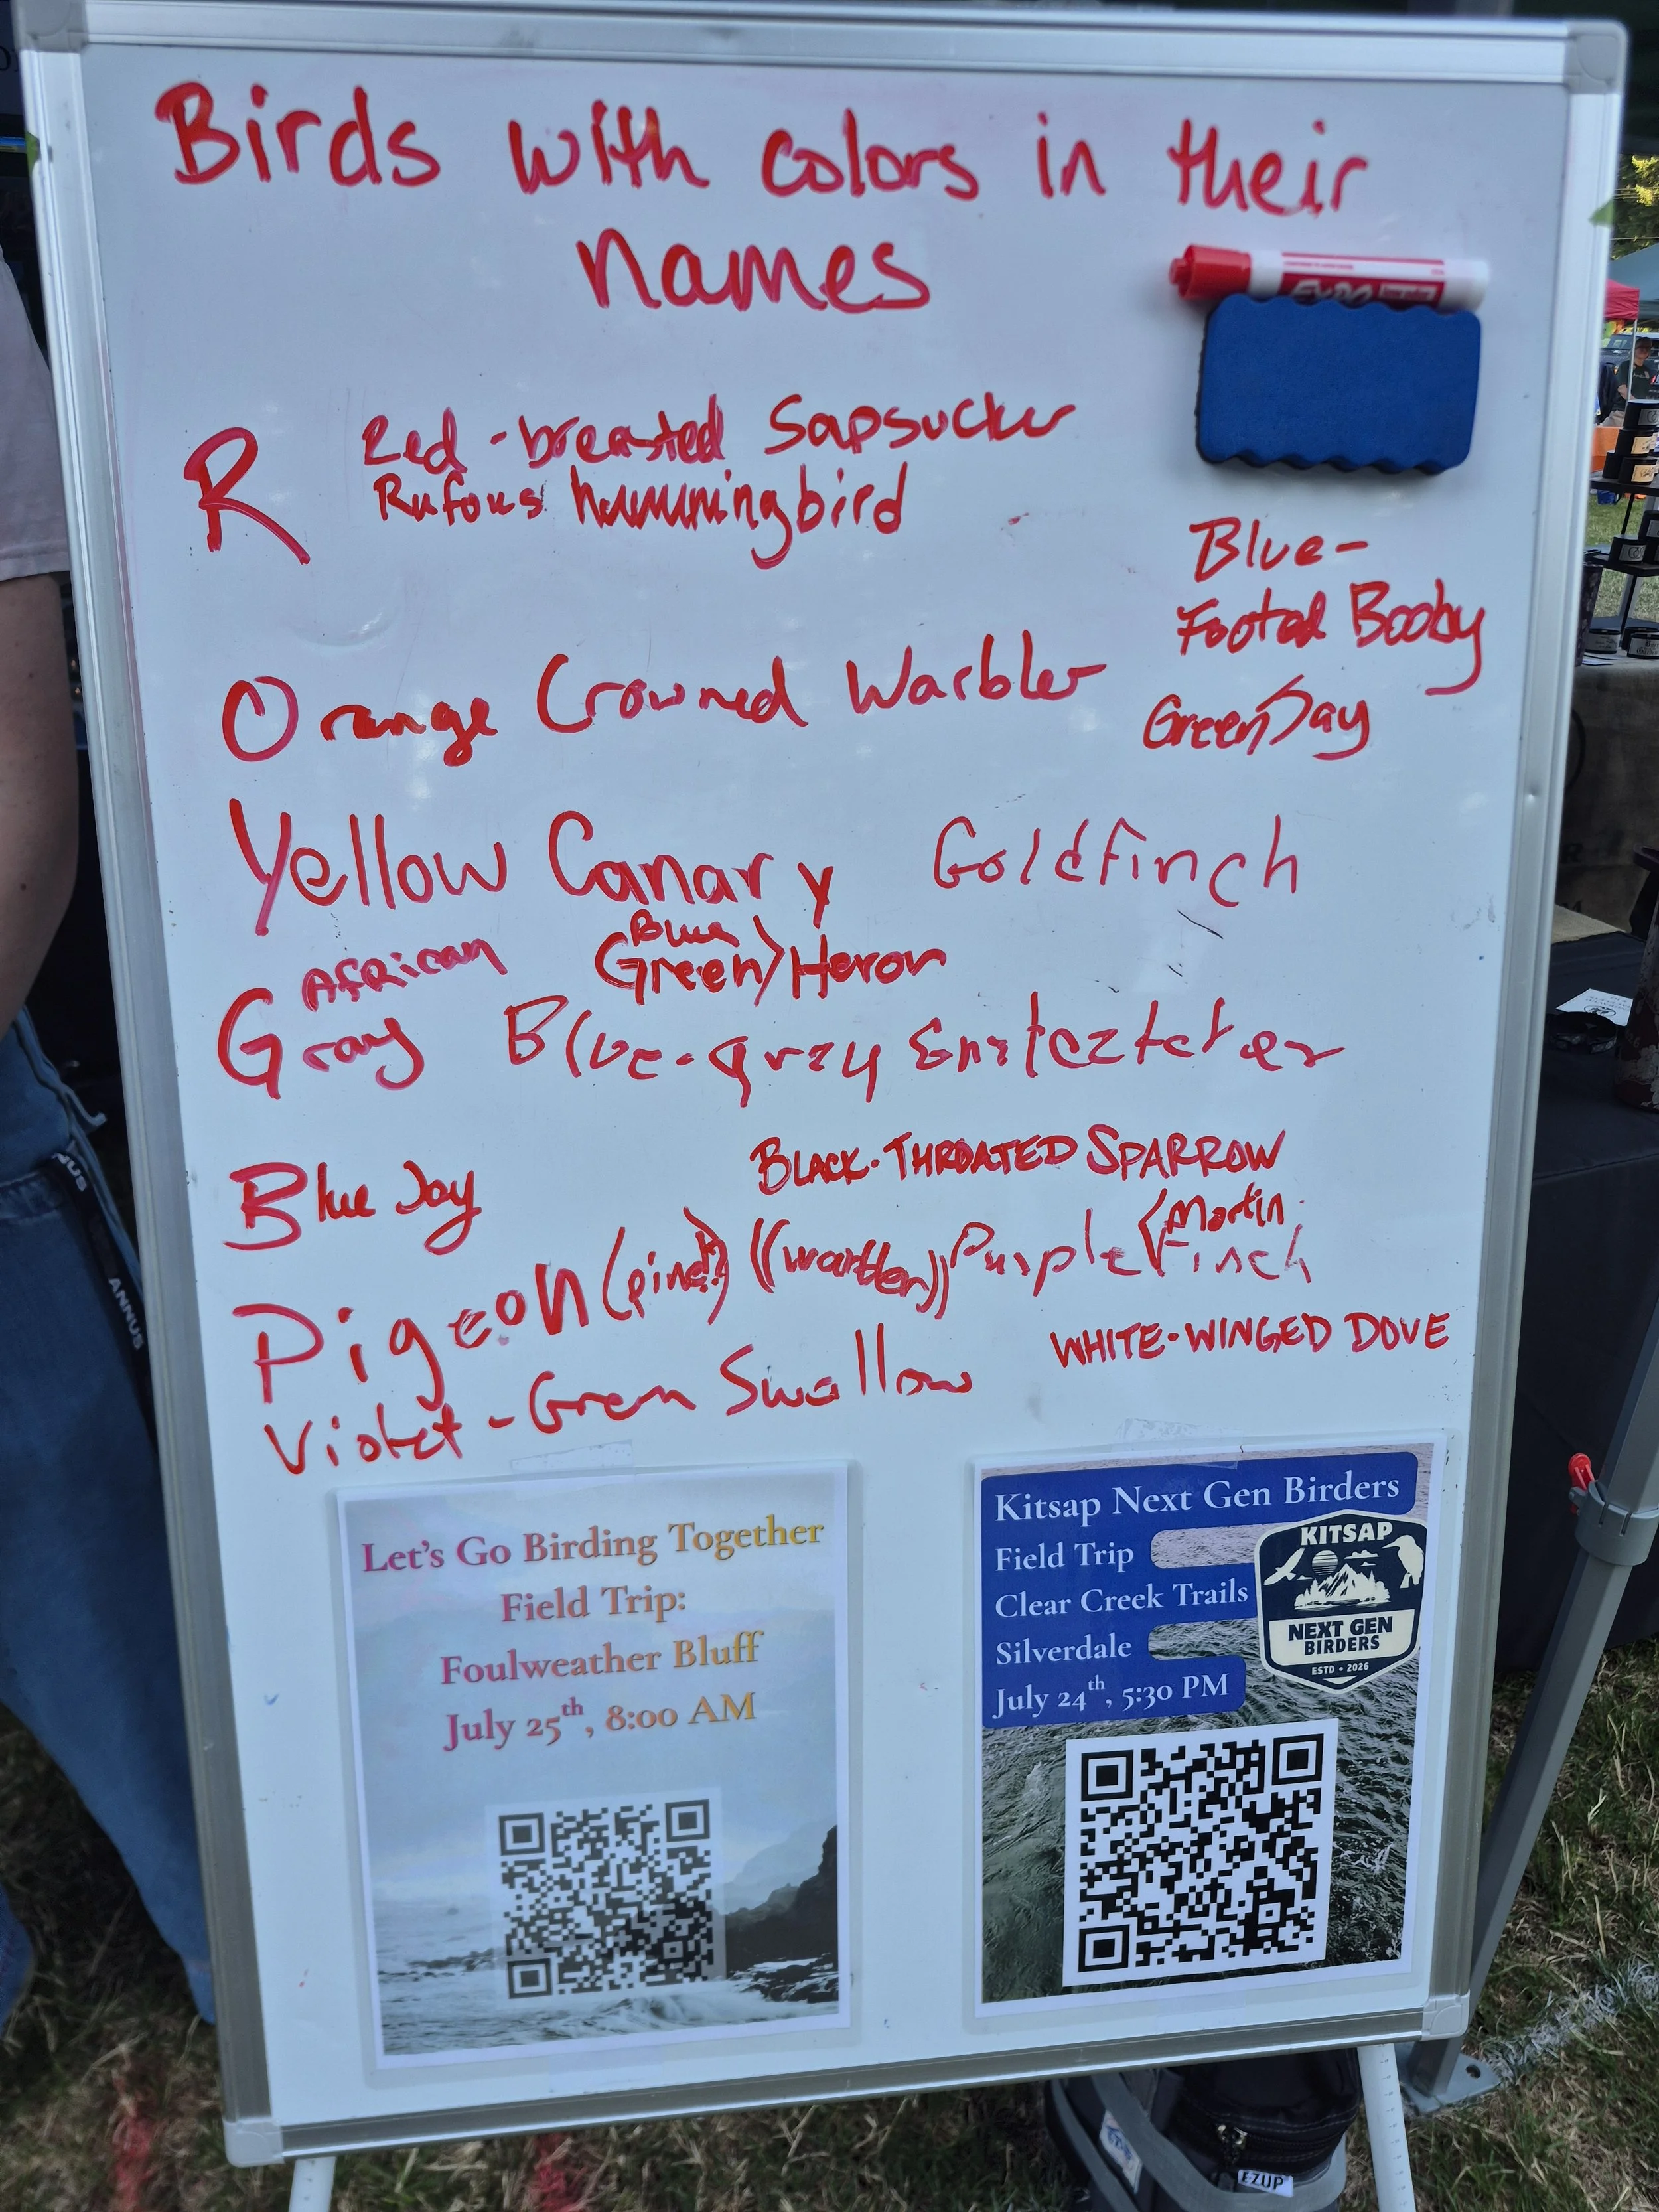 Birds with colors in their
names
EXPO
R Red-breasted Sapsucker
Rufous hummingbird
Blue-
Footed Booby
Orange Crowned Warbler
Green Jay
Yellow Canary Goldfinch
African
Gray
Blue
Green > Heron
Blue-gray Gnatcatcher
Blue Jay
BLACK-THROATED SPARROW
Pigeon (pink?) ((warbler)) Purple < Martin
Finch
WHITE-WINGED DOVE
Violet-Green Swallow
Let's Go Birding Together
Field Trip:
Foulweather Bluff
July 25th, 8:00 AM
Kitsap Next Gen Birders
Field Trip
Clear Creek Trails
Silverdale
July 24th, 5:30 PM
KITSAP
NEXT GEN
BIRDERS
ESTD • 2026
ANNUS
E-ZUP